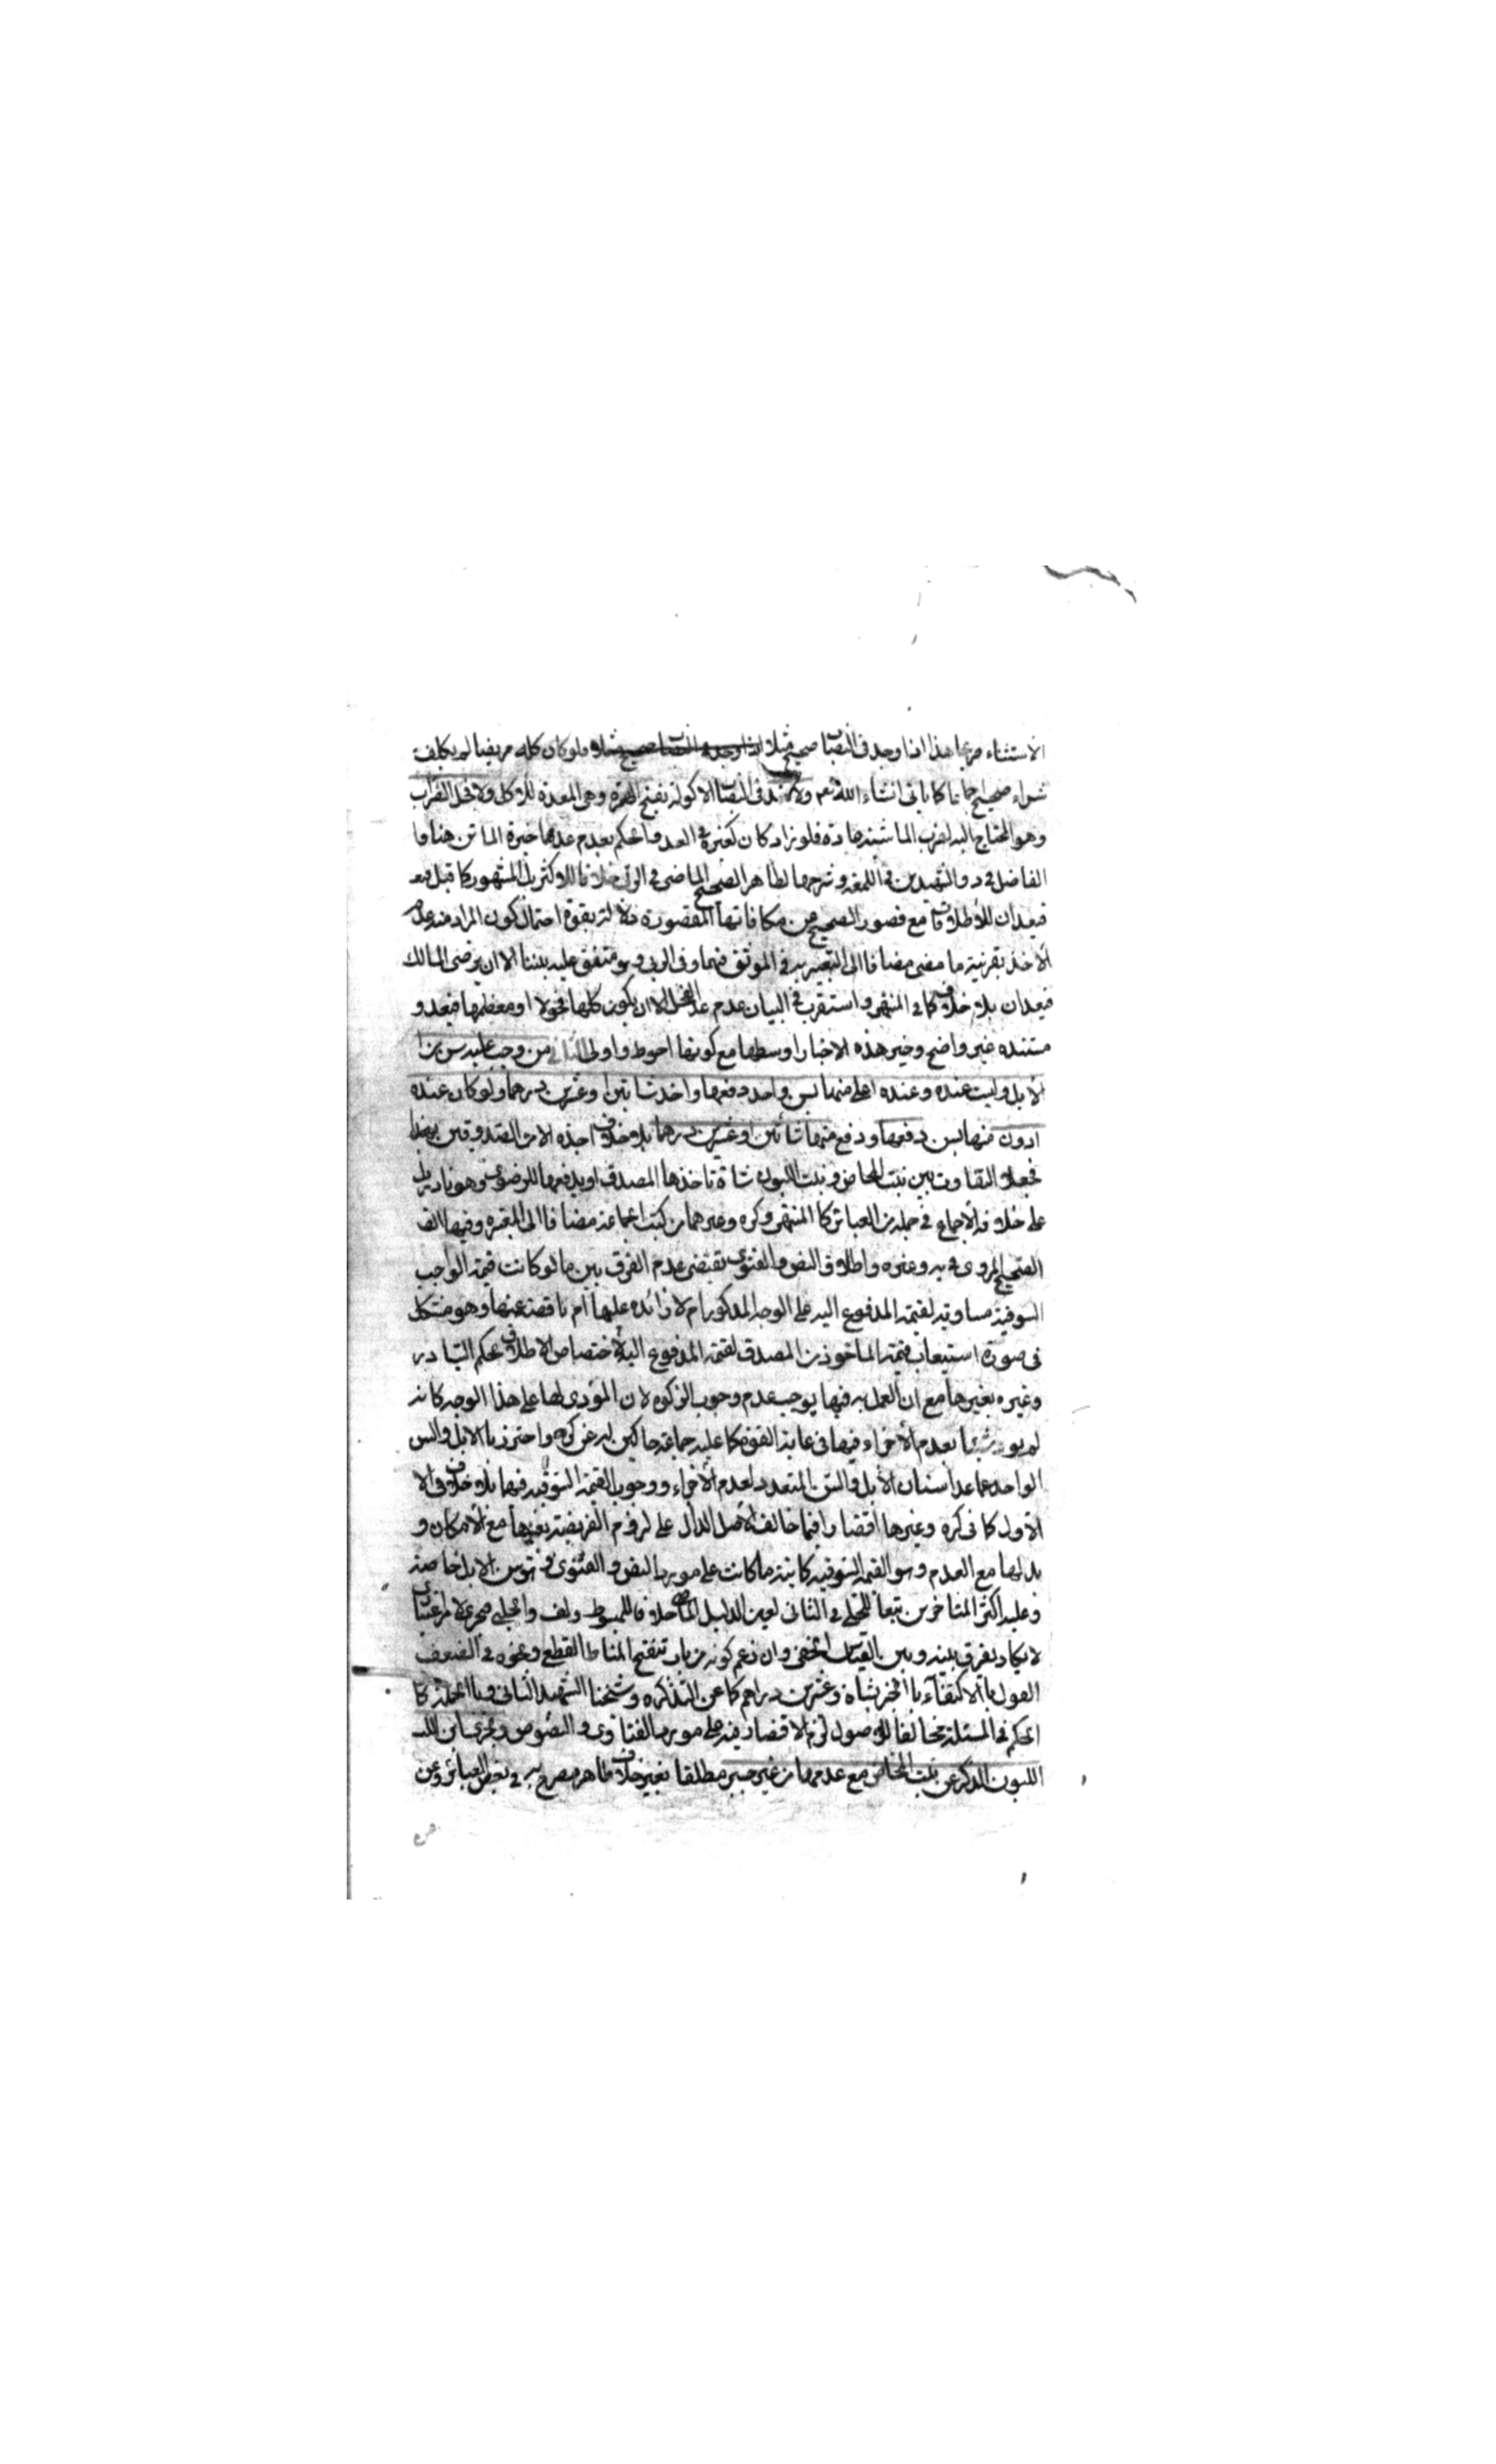 الاستثناء صريحا هذا اذا وجد فى النصاب صحيح مثلا فلو كان كله مريضا لم يكلف
شراء صحيح اجماعا كما ياتى انشاء الله تعم ولا تعد فى النصاب الاكولة بفتح الهمزة وهى المعدة للاكل ولا فحل الضراب
وهو المحتاج اليه لضرب الماشية عادة فلو زاد كان كغيره فى العد والحكم بعدم عدهما خيرة الماتن هنا و
الفاضل فى د والشهيدين فى اللمعة وشرحها لظاهر الصحيح الماضى فى الربى خلافا للاكثر بل المشهور كما قيل فيعد
فيعدان للاطلاقات مع قصور الصحيح عن مكافاتها المقصورة دلالته بقوة احتمال كون المراد منه عدم
الاخذ بقرينة ما مضى مضافا الى التعبير به فى الموثق فيهما وفى الربى وهو متفق عليه بيننا الا ان يرضى المالك
فيعدان بلا خلاف كما فى المنتهى واستقرب فى البيان عدم عد الفحل الا ان يكون كلها فحولا او معظمها فيعد و
مستنده غير واضح وخير هذه الاخبار اوسطها مع كونها احوط واولى الثانى من وجب عليه سن من
الابل وليست عنده وعنده اعلى منها بسن واحد دفعها واخذ شاتين او عشرين درهما ولو كان عنده
ادون منها بسن دفعها ودفع معها شاتين او عشرين درهما بلا خلاف اجده الا من الصدوقين
فجعلا التفاوت بين بنت المخاض وبنت اللبون شاة تاخذها المصدق او يدفعها للرضوى وهو نادر بل
على خلافه الاجماع فى جملة من العبائر كالمنتهى وكره وغيرهما من كتب الجماعة مضافا الى المعتبرة وفيها
الصحيح المروى فى يه وغيره واطلاق النص والفتوى يقتضى عدم الفرق بين ما لو كانت قيمة الواجب
السوقية مساوية لقيمة المدفوع اليه على الوجه المذكور ام لا زائدة عليها ام ناقصة عنها وهو مشكل
فى صورة استيعاب قيمة الماخوذ من المصدق لقيمة المدفوع اليه لاختصاص الاطلاق بحكم التبادر
وغيره بغيرها مع ان العمل به فيها يوجب عدم وجوب الزكوة لان المؤدى لها على هذا الوجه كانه
لم يؤد شيئا بعدم الاجزاء فيها فى غاية القوة كما عليه جماعة حاكين له عن كره واحترز بالابل والسن
الواحد عما عدا اسنان الابل والسن المتعدد لعدم الاجزاء ووجوب القيمة السوقية فيها بلا خلاف فى
الاول كما فى كره وغيرها اقتصارا فيما خالف الاصل الدال على لزوم الفريضة بعينها مع الامكان و
بدلها مع العدم وهو القيمة السوقية كاينة ما كانت على مورد النص والفتوى وهو سن الابل خاصة
وعليه اكثر المتاخرين تبعا للحلى فى الثانى لعين الدليل الماضى خلافا للمبسوط ولف والحلبى
لا يكاد يفرق بينه وبين القياس الخفى وان زعم كونه من باب تنقيح المناط القطعى ونحوه فى الضعف
القول بالاكتفاء بالجبر بشاة وعشرين دراهم كما عن التذكره وشيخنا الشهيد الثانى وبالجملة لما كان
الحكم فى المسئلة مخالفا للاصول لزم الاقتصار فيه على مورد الفتاوى والنصوص ويجزى ابن
اللبون الذكر عن بنت المخاض مع عدمها من غير جبر مطلقا بغير خلاف ظاهر مصرح به فى بعض العبائر وعن